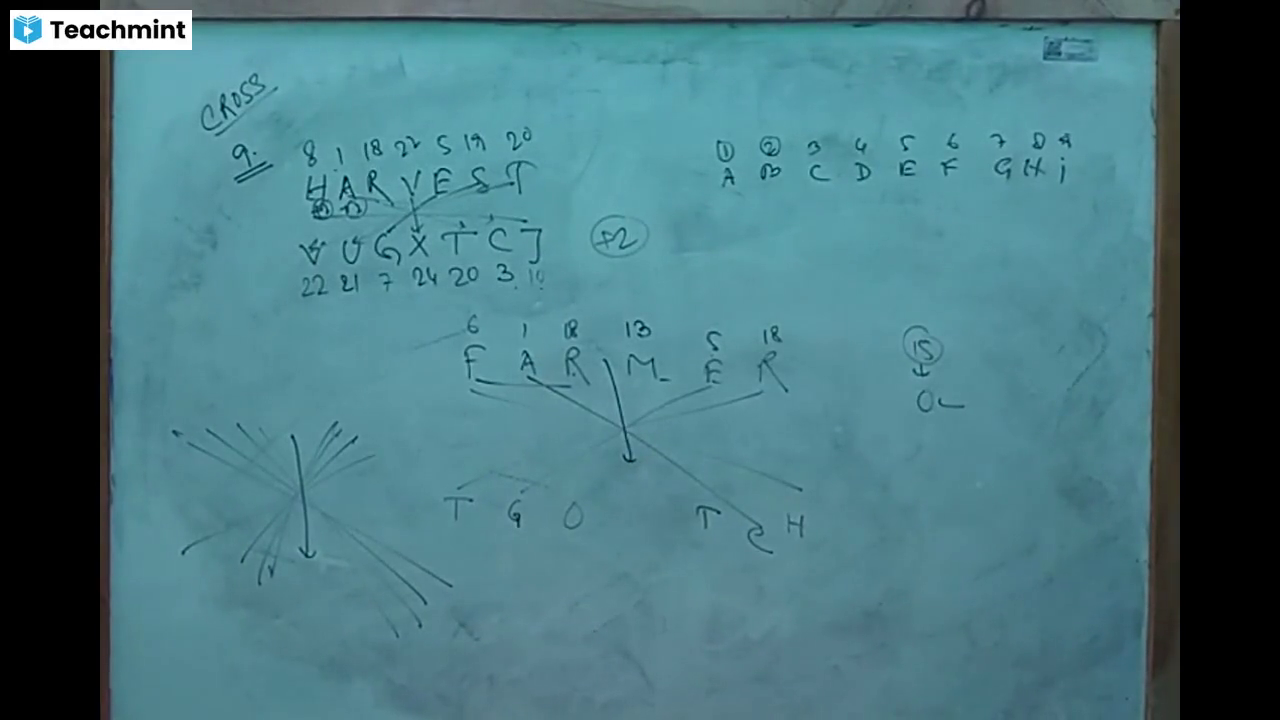 Teachmint
CROSS
9.
8 1 18 22 5 19 20
H A R V E S T
V U G X T C J
22 21 7 24 20 3 10
+2
1 2 3 4 5 6 7 8 9
A B C D E F G H i
6 1 18 13 5 18
F A R M E R
15
O
T G O T C H